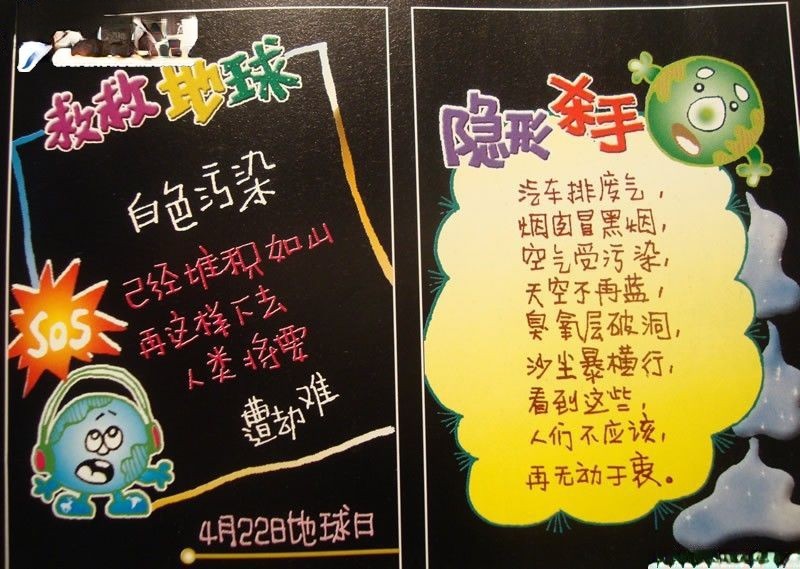 救救地球
白色污染
己经堆积如山
再这样下去
人类将要
遭劫难
SOS
4月22日地球日
隐形杀手
汽车排废气,
烟囱冒黑烟,
空气受污染,
天空不再蓝,
臭氧层破洞,
沙尘暴横行,
看到这些,
人们不应该,
再无动于衷。